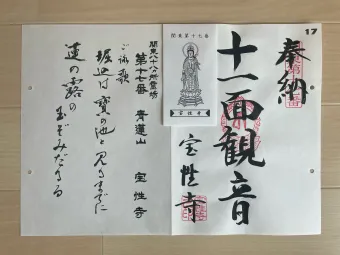 17
奉納
十一面観音
宝性寺
関東第十七番
宝性寺
関東八十八カ所霊場
第十七番 青蓮山 宝性寺
ご詠歌
堀込は 宝の池と見るまでに
蓮の露の
玉ぞみだるる